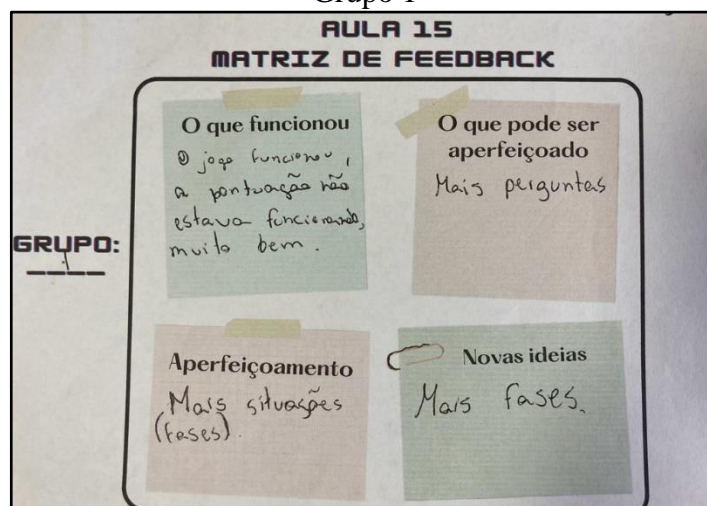 Grupo 1
AULA 15
MATRIZ DE FEEDBACK
O que funcionou
O jogo funcionou,
a pontuação não
estava funcionando,
muito bem.
O que pode ser
aperfeiçoado
Mais perguntas
GRUPO:
1
Aperfeiçoamento
Mais situações
(fases).
Novas ideias
Mais fases.